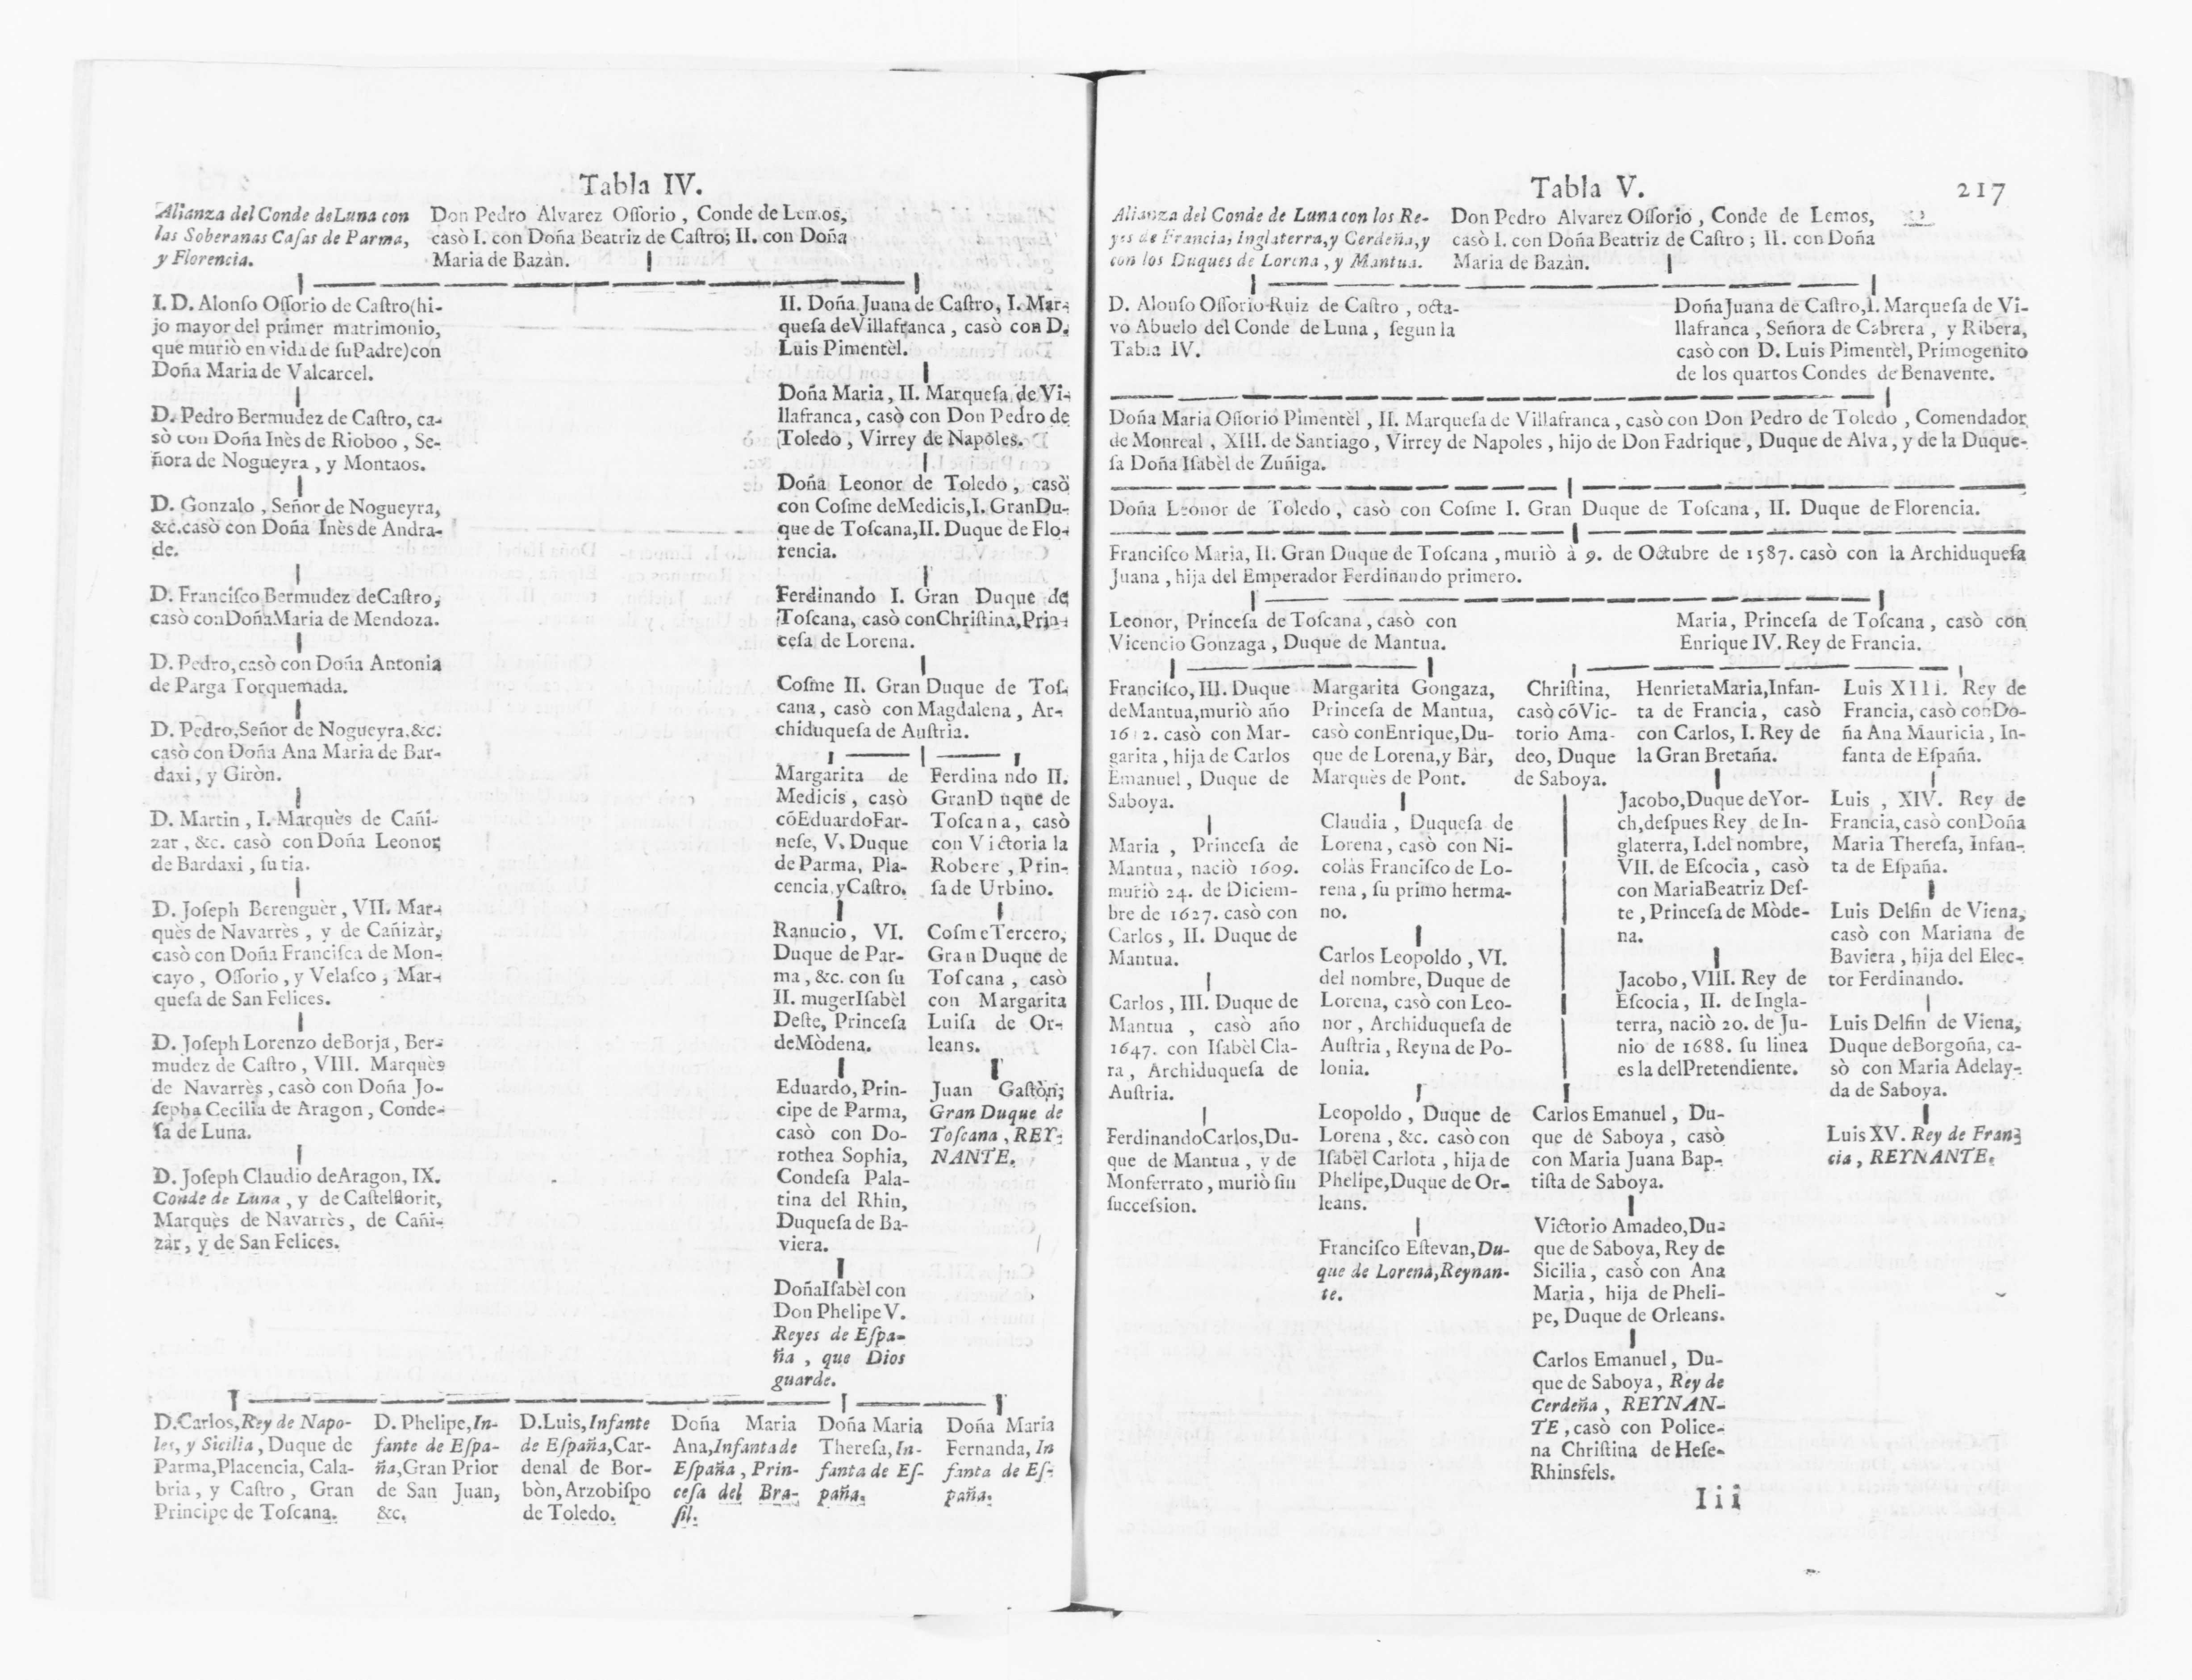 Tabla IV.
Alianza del Conde de Luna con
las Soberanas Caſas de Parma,
y Florencia.
Don Pedro Alvarez Oſſorio, Conde de Lemos,
casò I. con Doña Beatriz de Caſtro; II. con Doña
Maria de Bazàn.
I. D. Alonſo Oſſorio de Caſtro (hi-
jo mayor del primer matrimonio,
que muriò en vida de ſu Padre) con
Doña Maria de Valcarcel.
D. Pedro Bermudez de Caſtro, ca-
sò con Doña Inès de Rioboo, Se-
ñora de Nogueyra, y Montaos.
D. Gonzalo, Señor de Nogueyra,
&c. casò con Doña Inès de Andra-
de.
D. Franciſco Bermudez de Caſtro,
casò con Doña Maria de Mendoza.
D. Pedro, casò con Doña Antonia
de Parga Torquemada.
D. Pedro, Señor de Nogueyra, &c.
casò con Doña Ana Maria de Bar-
daxi, y Giròn.
D. Martin, I. Marquès de Cañi-
zar, &c. casò con Doña Leonor
de Bardaxi, ſu tia.
D. Joſeph Berenguèr, VII. Mar-
quès de Navarrès, y de Cañizàr,
casò con Doña Franciſca de Mon-
cayo, Oſſorio, y Velaſco, Mar-
queſa de San Felices.
D. Joſeph Lorenzo de Borja, Ber-
mudez de Caſtro, VIII. Marquès
de Navarrès, casò con Doña Jo-
ſepha Cecilia de Aragon, Conde-
ſa de Luna.
D. Joſeph Claudio de Aragon, IX.
Conde de Luna, y de Caſtelflorit,
Marquès de Navarrès, de Cañi-
zàr, y de San Felices.
II. Doña Juana de Caſtro, I. Mar-
queſa de Villafranca, casò con D.
Luis Pimentèl.
Doña Maria, II. Marqueſa de Vi-
llafranca, casò con Don Pedro de
Toledo, Virrey de Napoles.
Doña Leonor de Toledo, casò
con Coſme de Medicis, I. Gran Du-
que de Toſcana, II. Duque de Flo-
rencia.
Ferdinando I. Gran Duque de
Toſcana, casò con Chriſtina, Prin-
ceſa de Lorena.
Coſme II. Gran Duque de Toſ-
cana, casò con Magdalena, Ar-
chiduqueſa de Auſtria.
Margarita de
Medicis, casò
cõ Eduardo Far-
neſe, V. Duque
de Parma, Pla-
cencia, y Caſtro.
Ranucio, VI.
Duque de Par-
ma, &c. con ſu
II. muger Iſabèl
Deſte, Princeſa
de Mòdena.
Eduardo, Prin-
cipe de Parma,
casò con Do-
rothea Sophia,
Condeſa Pala-
tina del Rhin,
Duqueſa de Ba-
viera.
Doña Iſabèl con
Don Phelipe V.
Reyes de Eſpa-
ña, que Dios
guarde.
Ferdinando II.
Gran Duque de
Toſcana, casò
con Victoria la
Robere, Prin-
ſa de Urbino.
Coſme Tercero,
Gran Duque de
Toſcana, casò
con Margarita
Luiſa de Or-
leans.
Juan Gaſtòn,
Gran Duque de
Toſcana, REY-
NANTE.
D. Carlos, Rey de Napo-
les, y Sicilia, Duque de
Parma, Placencia, Cala-
bria, y Caſtro, Gran
Principe de Toſcana.
D. Phelipe, In-
fante de Eſpa-
ña, Gran Prior
de San Juan,
&c.
D. Luis, Infante
de Eſpaña, Car-
denal de Bor-
bòn, Arzobiſpo
de Toledo.
Doña Maria
Ana, Infanta de
Eſpaña, Prin-
ceſa del Bra-
ſil.
Doña Maria
Thereſa, In-
fanta de Eſ-
paña.
Doña Maria
Fernanda, In
fanta de Eſ-
paña.
Tabla V. 217
Alianza del Conde de Luna con los Re-
yes de Francia, Inglaterra, y Cerdeña, y
con los Duques de Lorena, y Mantua.
Don Pedro Alvarez Oſſorio, Conde de Lemos,
casò I. con Doña Beatriz de Caſtro; II. con Doña
Maria de Bazàn.
D. Alonſo Oſſorio Ruiz de Caſtro, octa-
vo Abuelo del Conde de Luna, ſegun la
Tabla IV.
Doña Juana de Caſtro, I. Marqueſa de Vi-
llafranca, Señora de Cabrera, y Ribera,
casò con D. Luis Pimentèl, Primogenito
de los quartos Condes de Benavente.
Doña Maria Oſſorio Pimentèl, II. Marqueſa de Villafranca, casò con Don Pedro de Toledo, Comendador
de Monreal, XIII. de Santiago, Virrey de Napoles, hijo de Don Fadrique, Duque de Alva, y de la Duque-
ſa Doña Iſabèl de Zuñiga.
Doña Leonor de Toledo, casò con Coſme I. Gran Duque de Toſcana, II. Duque de Florencia.
Franciſco Maria, II. Gran Duque de Toſcana, muriò à 9. de Octubre de 1587. casò con la Archiduqueſa
Juana, hija del Emperador Ferdinando primero.
Leonor, Princeſa de Toſcana, casò con
Vicencio Gonzaga, Duque de Mantua.
Maria, Princeſa de Toſcana, casò con
Enrique IV. Rey de Francia.
Franciſco, III. Duque
de Mantua, muriò año
1612. casò con Mar-
garita, hija de Carlos
Emanuel, Duque de
Saboya.
Maria, Princeſa de
Mantua, naciò 1609.
muriò 24. de Diciem-
bre de 1627. casò con
Carlos, II. Duque de
Mantua.
Carlos, III. Duque de
Mantua, casò año
1647. con Iſabèl Cla-
ra, Archiduqueſa de
Auſtria.
Ferdinando Carlos, Du-
que de Mantua, y de
Monferrato, muriò ſin
ſucceſsion.
Margarita Gongaza,
Princeſa de Mantua,
casò con Enrique, Du-
que de Lorena, y Bàr,
Marquès de Pont.
Claudia, Duqueſa de
Lorena, casò con Ni-
colàs Franciſco de Lo-
rena, ſu primo herma-
no.
Carlos Leopoldo, VI.
del nombre, Duque de
Lorena, casò con Leo-
nor, Archiduqueſa de
Auſtria, Reyna de Po-
lonia.
Leopoldo, Duque de
Lorena, &c. casò con
Iſabèl Carlota, hija de
Phelipe, Duque de Or-
leans.
Franciſco Eſtevan, Du-
que de Lorena, Reynan-
te.
Chriſtina,
casò cõ Vic-
torio Ama-
deo, Duque
de Saboya.
Carlos Emanuel, Du-
que de Saboya, casò
con Maria Juana Bap-
tiſta de Saboya.
Victorio Amadeo, Du-
que de Saboya, Rey de
Sicilia, casò con Ana
Maria, hija de Pheli-
pe, Duque de Orleans.
Carlos Emanuel, Du-
que de Saboya, Rey de
Cerdeña, REYNAN-
TE, casò con Police-
na Chriſtina de Heſe-
Rhinsfels.
Henrieta Maria, Infan-
ta de Francia, casò
con Carlos, I. Rey de
la Gran Bretaña.
Jacobo, Duque de Yor-
ch, deſpues Rey de In-
glaterra, I. del nombre,
VII. de Eſcocia, casò
con Maria Beatriz Deſ-
te, Princeſa de Mòde-
na.
Jacobo, VIII. Rey de
Eſcocia, II. de Ingla-
terra, naciò 20. de Ju-
nio de 1688. ſu linea
es la del Pretendiente.
Luis XIII. Rey de
Francia, casò con Do-
ña Ana Mauricia, In-
fanta de Eſpaña.
Luis, XIV. Rey de
Francia, casò con Doña
Maria Thereſa, Infan-
ta de Eſpaña.
Luis Delfin de Viena,
casò con Mariana de
Baviera, hija del Elec-
tor Ferdinando.
Luis Delfin de Viena,
Duque de Borgoña, ca-
sò con Maria Adelay-
da de Saboya.
Luis XV. Rey de Fran-
cia, REYNANTE.
Iii